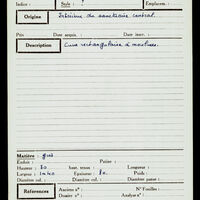 Indice : Style : Emplacem. :
Origine Intérieur du sanctuaire central.
Prix Date acquis. : Date inser. :
Description Cuve rectangulaire à moulures.
Matière : grès
Enduit : Patine :
Hauteur : 80 haut. tenon : Longueur :
Largeur : 1m40 Epaisseur : 80. Poids :
Diamètre col. : Diamètre ouv. :
Références Anciens nos : No Fouilles :
Dossier no : Analyse no :